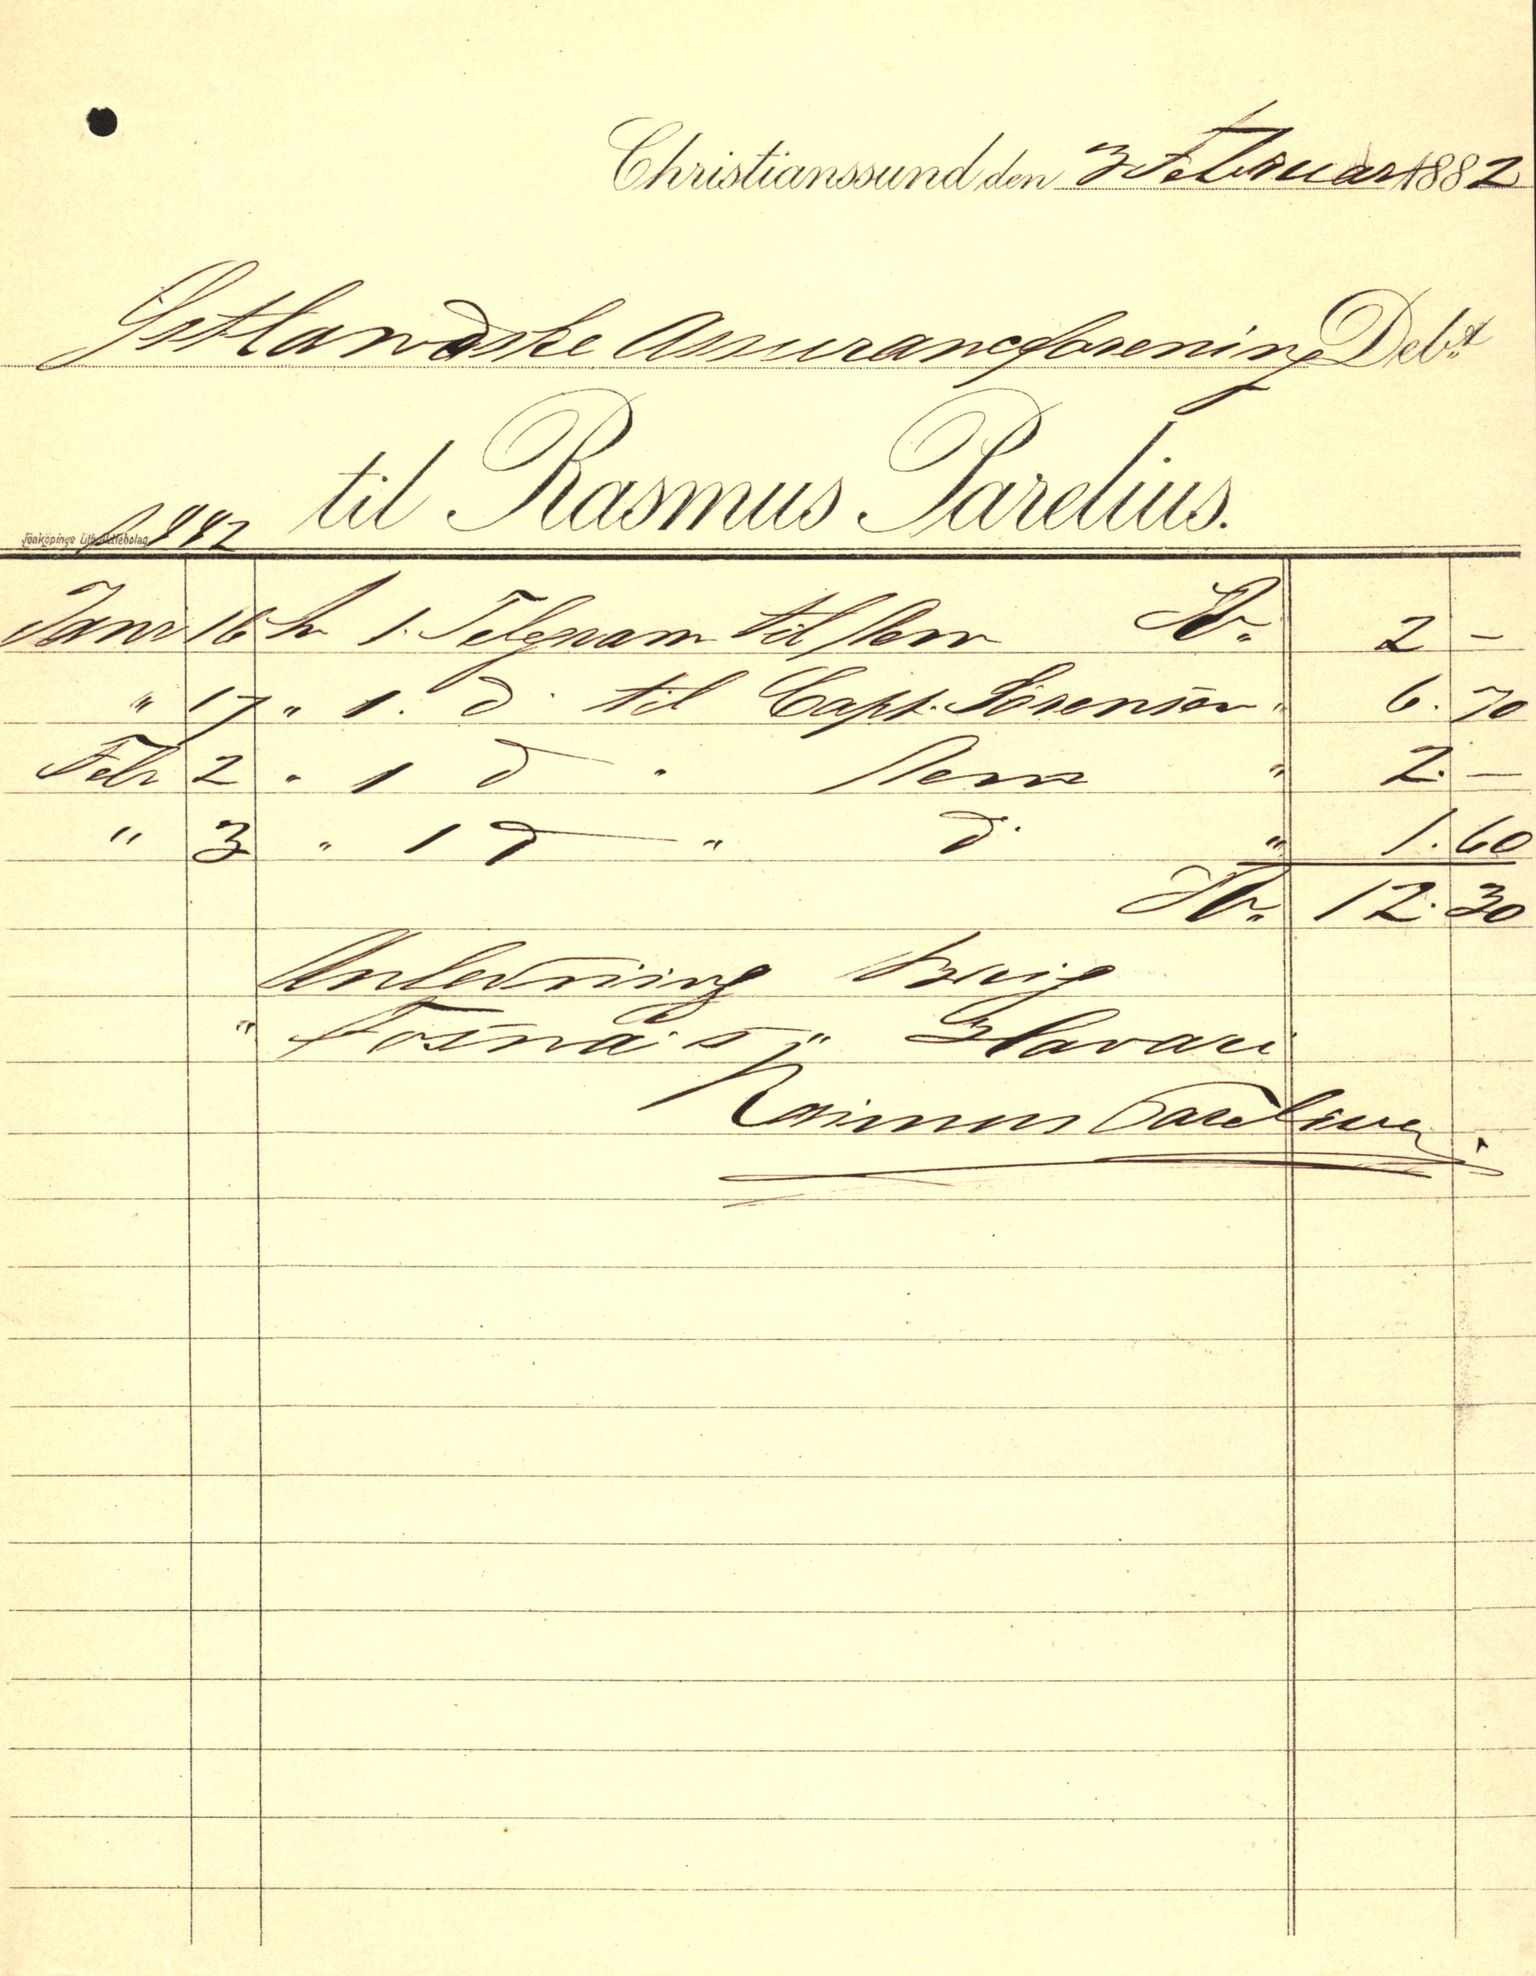 Christianssund den 3 Februar 1882
Østlandske Assuranceforening Deb.t
til Rasmus Parelius.
Jönköpings Lith. Aktiebolag
1882
Janr 16 1. Telegram til Kr. 2 –
" 17 " 1. do til Capt. Sørensen " 6. 70
Febr 2 " 1 do " " 2. –
" 3 " 1 do " do " 1. 60
Kr. 12. 30
Anledning Brig
" Fosna's " Havari
Rasmus Parelius.